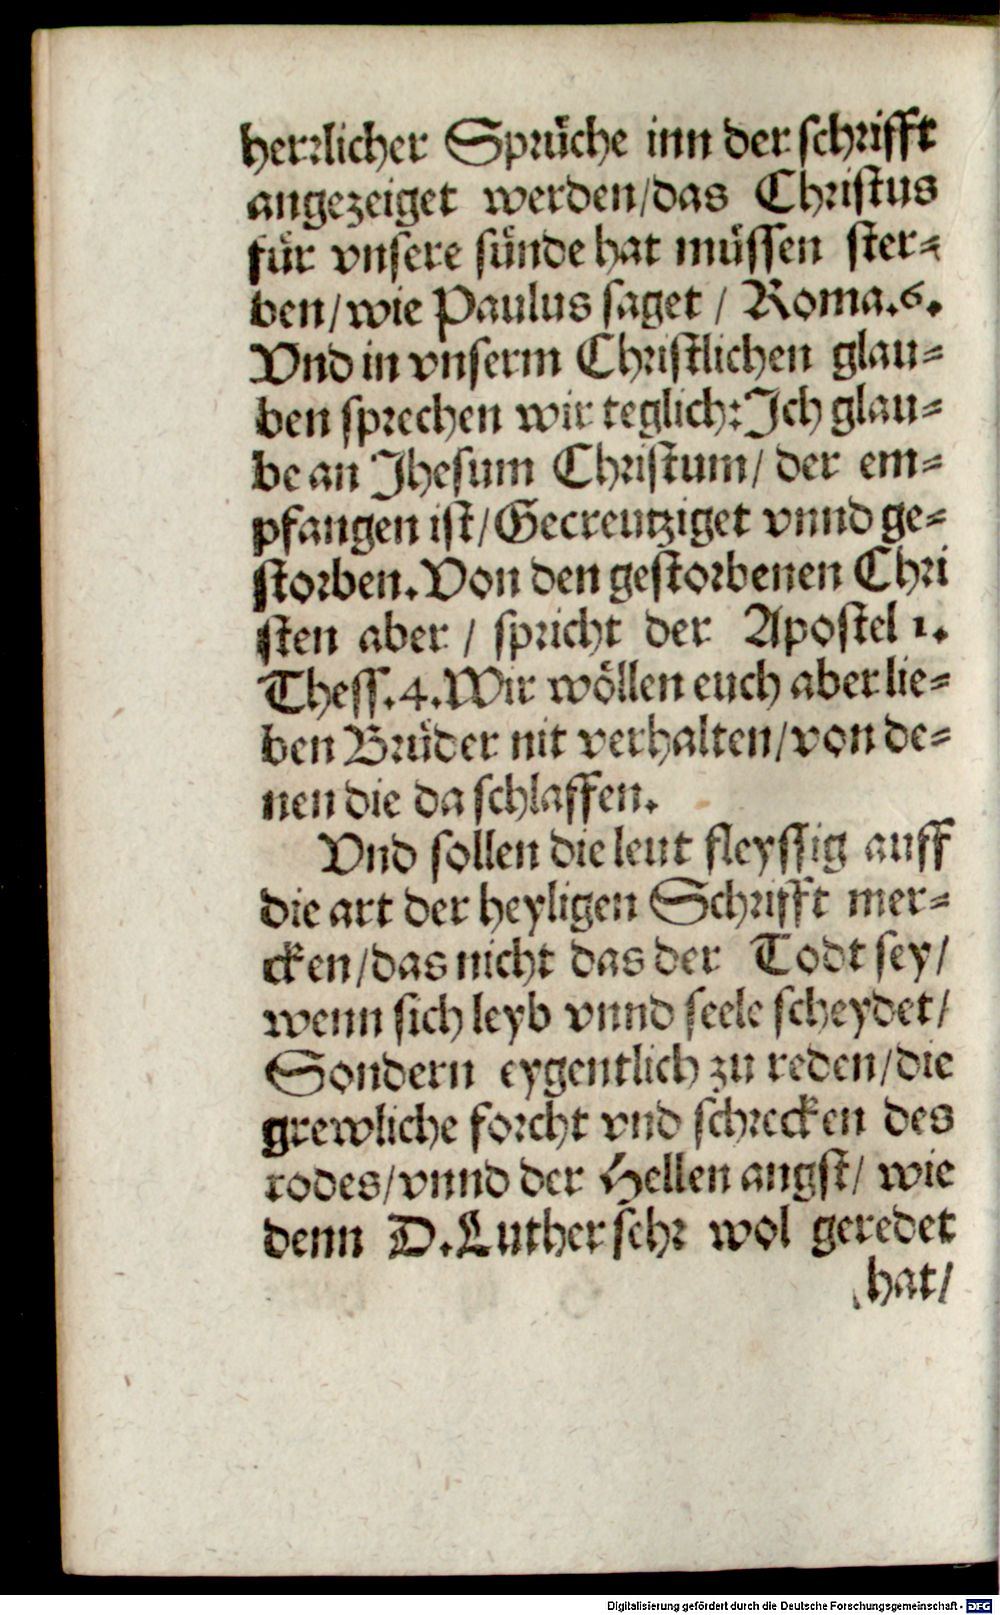 herrlicher Sprüche inn der schrifft
angezeiget werden/das Christus
für vnsere sünde hat müssen ster-
ben/wie Paulus saget / Roma.6.
Vnd in vnserm Christlichen glau-
ben sprechen wir teglich: Ich glau-
be an Jhesum Christum/ der em-
pfangen ist/Gecreutziget vnnd ge-
storben. Von den gestorbenen Chri
sten aber / spricht der Apostel 1.
Thess.4. Wir wöllen euch aber lie-
ben Brüder nit verhalten/von de-
nen die da schlaffen.
Vnd sollen die leut fleyssig auff
die art der heyligen Schrifft mer-
cken/das nicht das der Todt sey/
wenn sich leyb vnnd seele scheydet/
Sondern eygentlich zu reden/die
grewliche forcht vnd schrecken des
todes/vnnd der Hellen angst/ wie
denn D.Luther sehr wol geredet
hat/
Digitalisierung gefördert durch die Deutsche Forschungsgemeinschaft - DFG